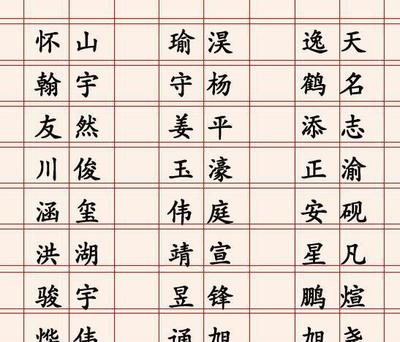 怀山 瑜淏 逸天
翰宇 守杨 鹤名
友然 姜平 添志
川俊 玉濠 正渝
涵玺 伟庭 安砚
洪湖 靖宣 星凡
骏宇 昱锋 鹏煊
烨伟 通旭 旭尧